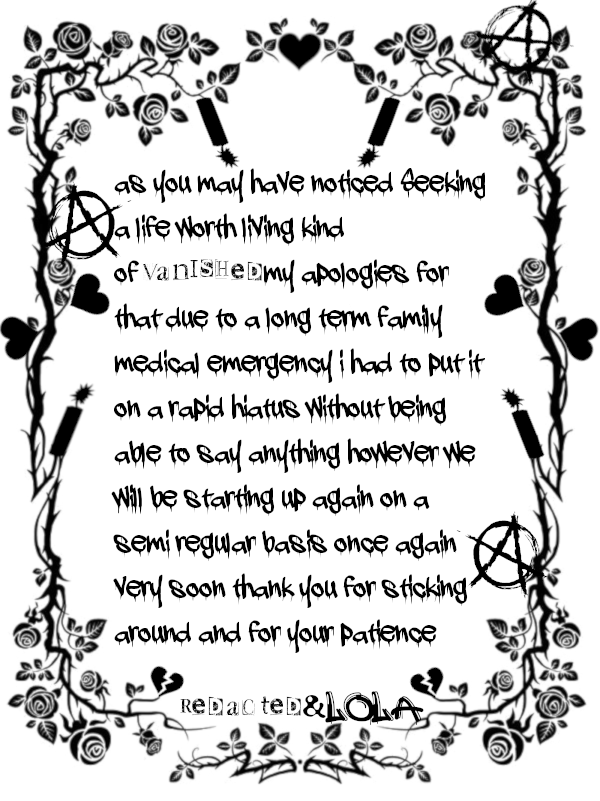 as you may have noticed Seeking
a life worth living kind
of VanISHeDmy apologies for
that due to a long term family
medical emergency i had to put it
on a rapid hiatus without being
able to say anything however we
will be starting up again on a
semi regular basis once again
very soon thank you for sticking
around and for your patience
ReDacteD&LOLA